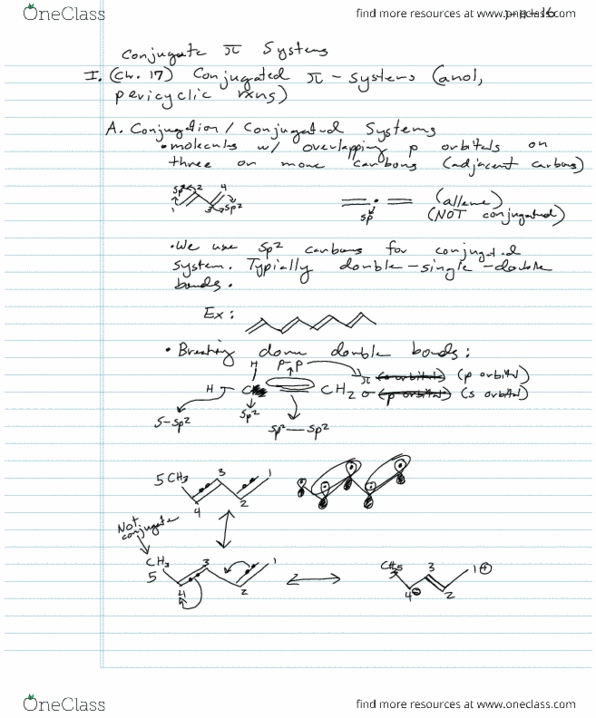 OneClass
find more resources at www.oneclass.com
Conjugate π Systems
I. (Ch. 17) Conjugated π-systems (and,
pericyclic rxns)
A. Conjugation / Conjugated Systems
• molecules w/ overlapping p orbitals on
three or more carbons (adjacent carbons)
sp² 2 4
1 3 sp²
= • = (allene)
sp (NOT conjugated)
• We use sp² carbons for conjugated
system. Typically double-single-double
bonds.
Ex:
• Breaking down double bonds:
H P-P π (p orbital)
H C CH2 σ (s orbital)
s-sp² sp² sp²—sp²
5 CH3 3 1
4 2
Not conjugate
CH3 3 1
5 4 2
CH3 3 1 ⊕
4 ⊖ 2
OneClass
find more resources at www.oneclass.com